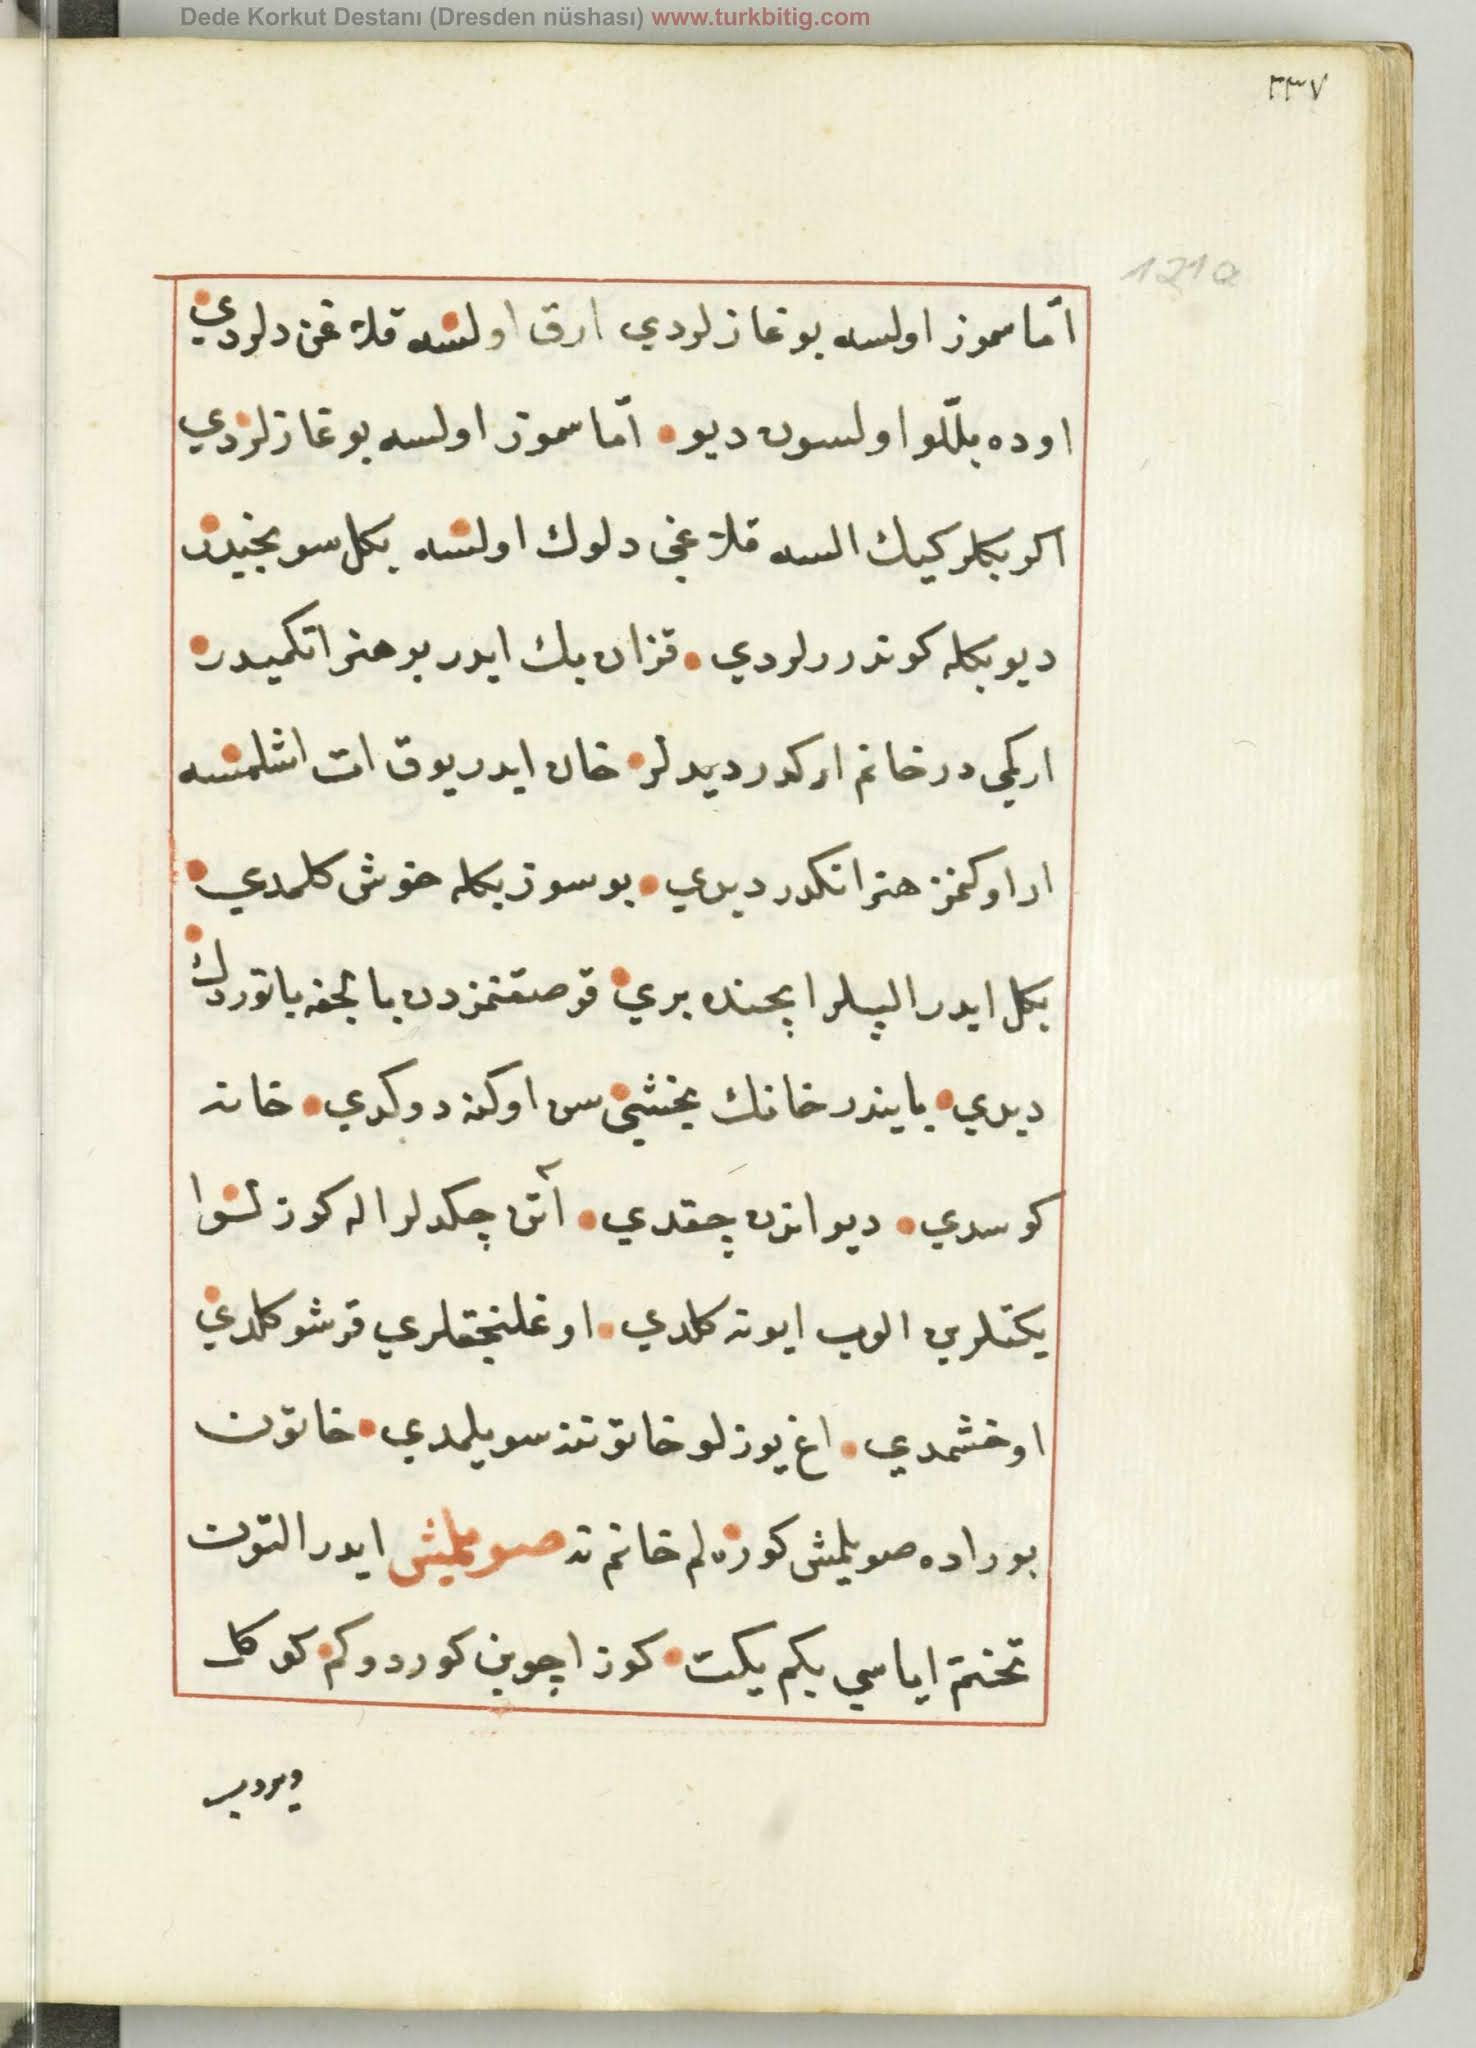 Dede Korkut Destanı (Dresden nüshası) www.turkbitig.com
٢٣٧
121a
امّا سموز اولسه بوغازلردي ارق اولسه قلاغن دلردي
اوده بللّو اولسون ديو امّا سموز اولسه بوغازلردي
اكر بكلر كيك السه قلاغي دلوك اولسه بكل سونجيدر
ديو بكله كوندررلردي قزان بك ايدر بو هنر اتكميدر
اركمي در خانم اركدر ديدلر خان ايدر يوق ات اشلمسه
ار اوكنمز هنر اتكدر ديدي بو سوز بكله خوش كلمدي
بكل ايدر الپلر ايچنده بزي قوصقنمزدن بالچغه باتوردك
ديدي بايندر خانك بخششي سن اوكنه دوكدي خانه
كوسدي ديواندن چقدي آتن چكدلر اله كوزلو
يكتلرين الوب ايونه كلدي اوغلنجقلري قرشو كلدي
اوخشمدي اغ يوزلو خاتوننه سويلمدي خاتون
بوراده صويلمش كوره لم خانم نه صويلمش ايدر التون
تختم اياسي بكم يكت كوز اچوبن كوردوكم كوكل
ويردب